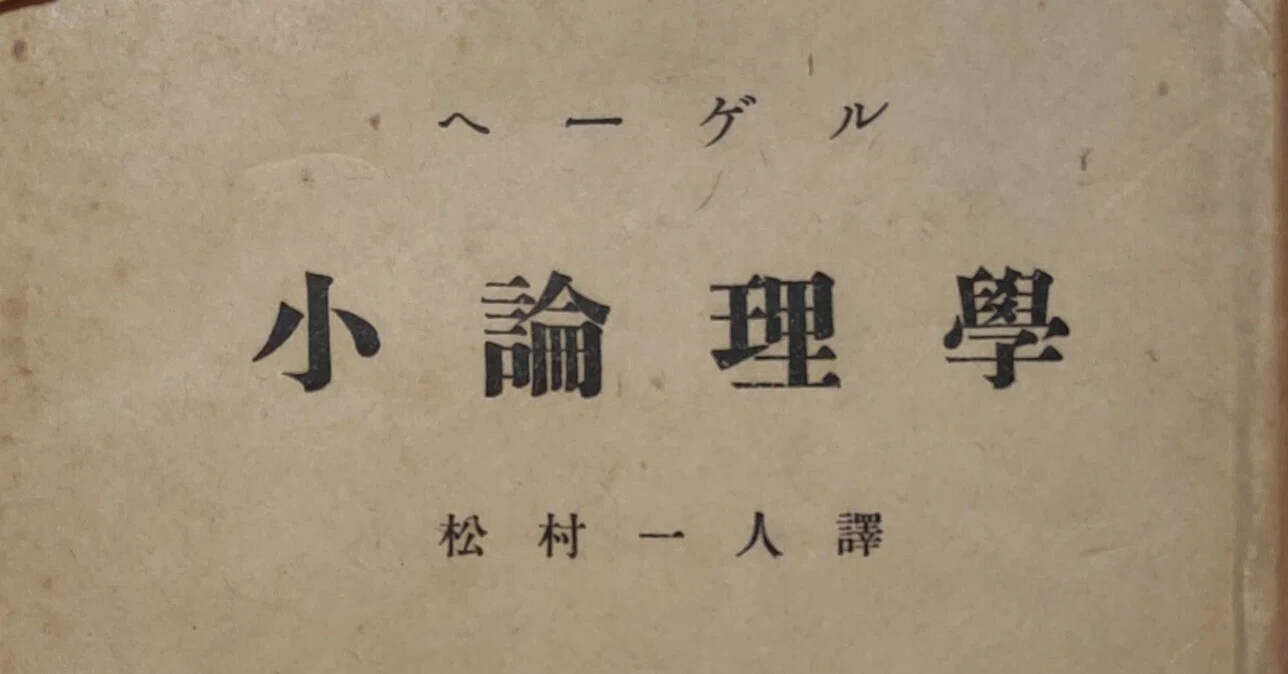 ヘーゲル
小論理學
松村一人譯